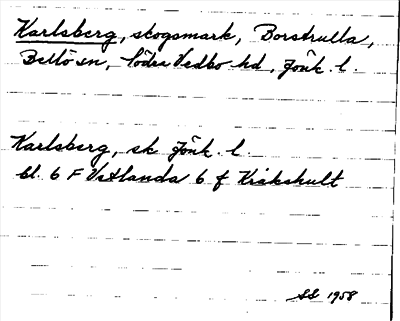 Karlsberg, skogsmark, Borstrulla,
Bellö sn, Södra Vedbo hd, Jönk. l.
Karlsberg, sk Jönk. l.
bl. 6 F Vetlanda 6 f Kråkshult
SG 1958